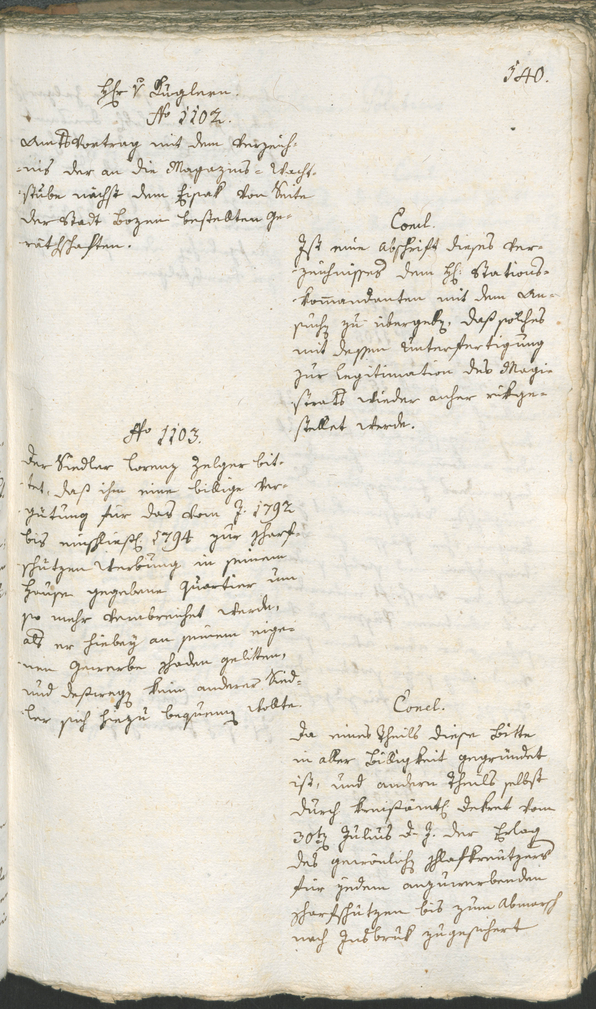 140.
H: v: Kuglern
No 1102.
Amtsvortrag mit dem Verzeich-
nis der an die Magazins-Wacht-
stube nächst dem Eisak von Seite
der Stadt Bozen bestellten Ge-
räthschaften.
Concl.
Ist eine Abschrift dieses Ver-
zeichnisses dem H: Stations-
kommandanten mit dem An-
suchen zu übergeben, daß solches
mit dessen Unterfertigung
zur Legitimation des Magi-
strats wieder anher rükge-
stellet werde.
No 1103.
Der Siedler Lorenz Zelger bit-
tet, daß ihm eine billige Ver-
gütung für das vom J. 1792
bis einschließl: 1794 zur Scharf-
schützen Werbung in seinem
Hause gegebene Quartier um
so mehr verabreichet werde,
als er hiebey an seinem eige-
nen Gewerbe Schaden gelitten,
und deßwegen kein anderer Sied-
ler sich hiezu bequemen wollte.
Concl.
Da eines Theils diese Bitte
in aller Billigkeit gegründet
ist, und andern Theils selbst
durch kreisämtl: Dekret vom
30ten Julius d. J. der Erlag
des gewönlichen Schlafkreutzers
für jeden anzuwerbenden
Scharfschützen bis zum Abmarsch
nach Insbruk zugesichert